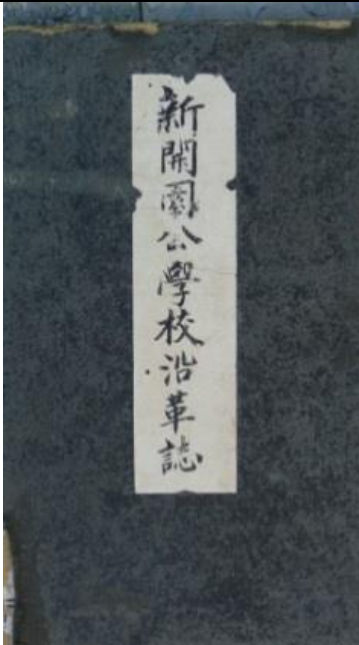 新開園公學校沿革誌